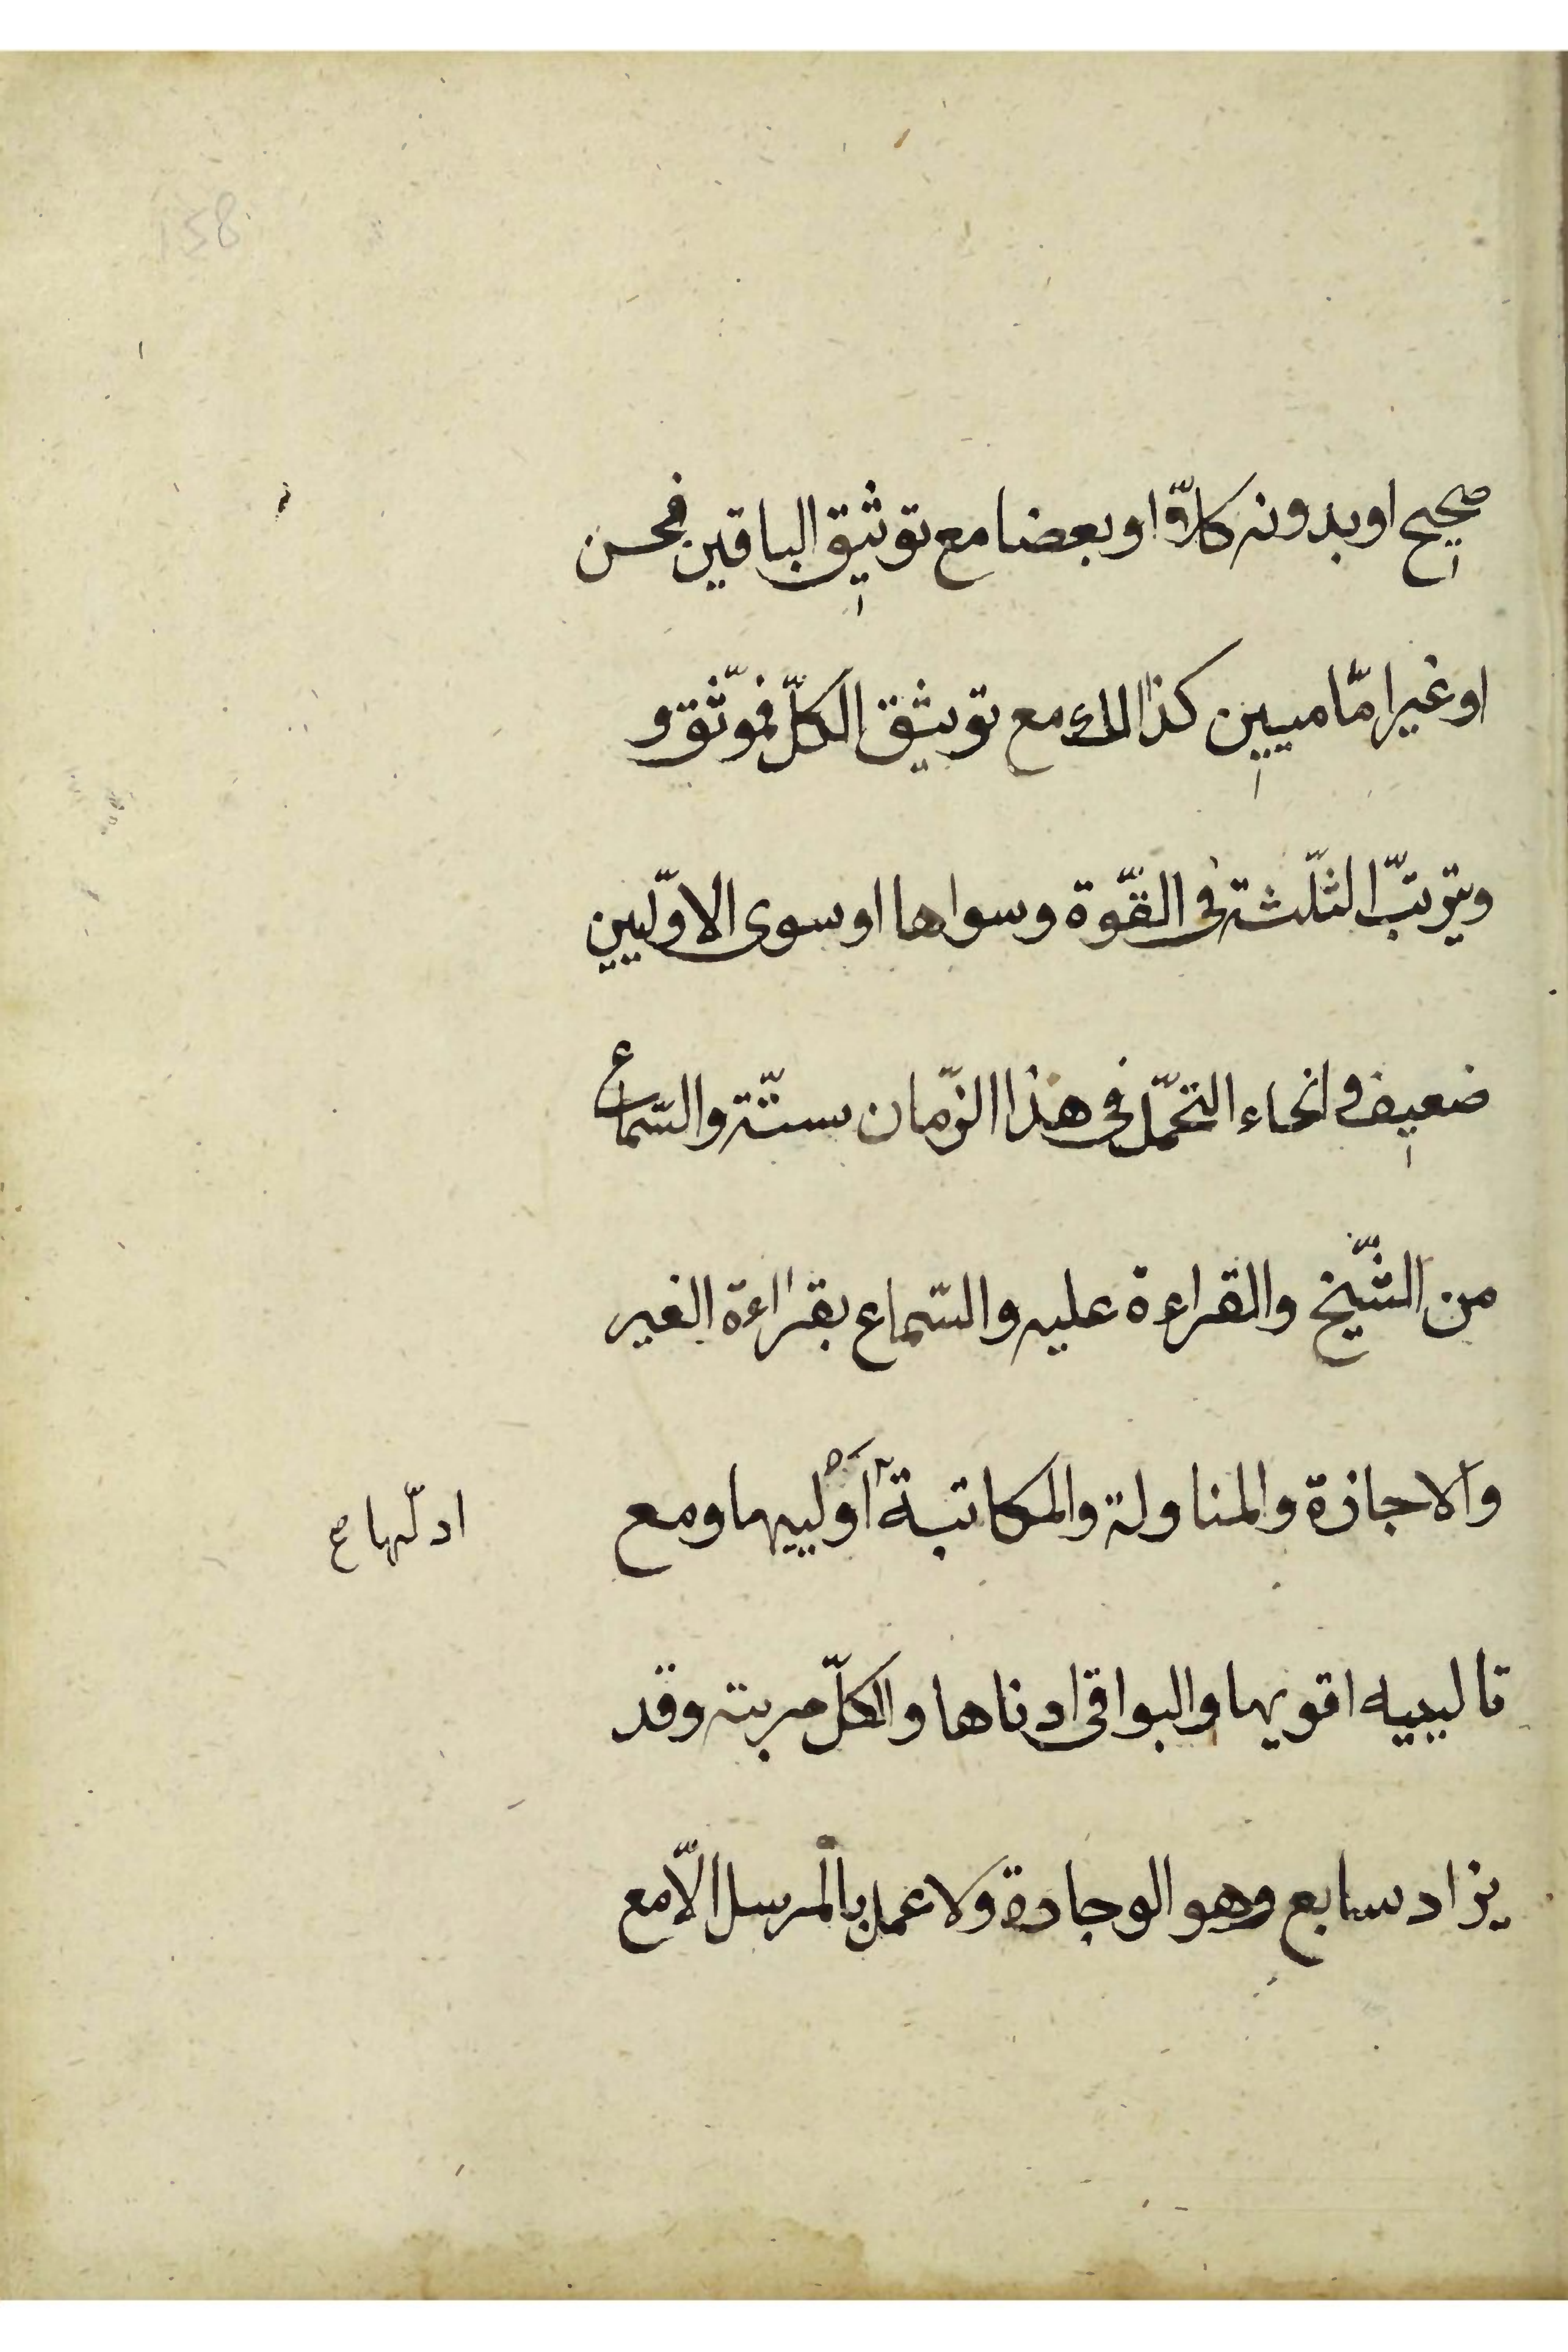 158
صحيح او بدونه كلاّ او بعضا مع توثيق الباقين فحسن
او غير امّاميين كذالك مع توثيق الكلّ فموّثق و
ويترتبّ الثلّثة فى القوّة وسواها او سوى الاوّليين
ضعيف و انحاء التحمّل فى هذا الزّمان ستّة والسّماع
من الشّيخ والقراءة عليه والسّماع بقراءة الغير
والاجازة والمناولة والمكاتبة اَوْلييها ومع
ادلّها ع
تالييه اقويها والبواقى ادناها والكلّ مربته وقد
يزاد سابع وهو الوجادة ولا عمل بالمرسل الاّ مع